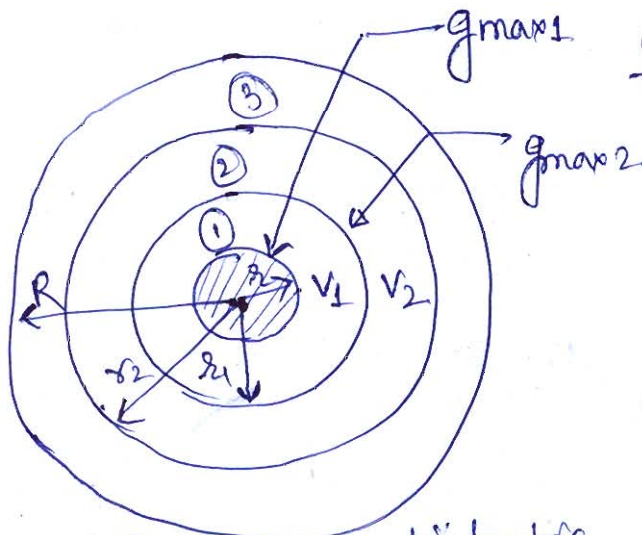 gmax1
gmax2
③
②
①
r
V1
V2
R
r2
r1